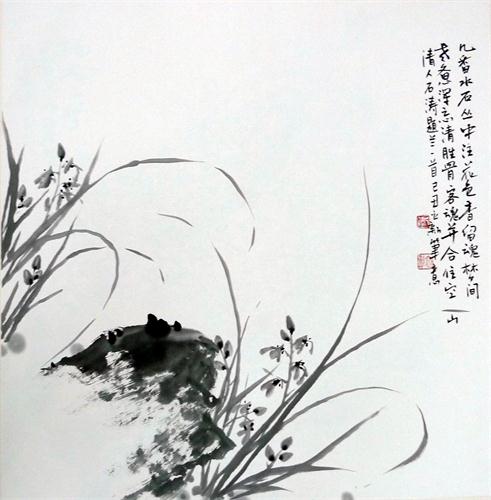 几番水石丛中注花色香留魂梦间
老意深忘清胜骨客魂并合住空山
清人石涛题兰一首己丑新笔意